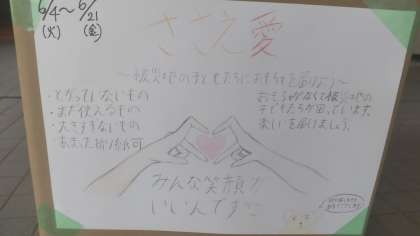 6/4〜6/21
(火) (金)
ささえ愛
〜被災地の子どもたちにおもちゃを届けよう〜
・とがっていないもの
・まだ使えるもの
・大きすぎないもの
おもちゃがなくて被災地の
子どもたちが困っています。
楽しいを届けましょう。
みんな笑顔が
いいんです